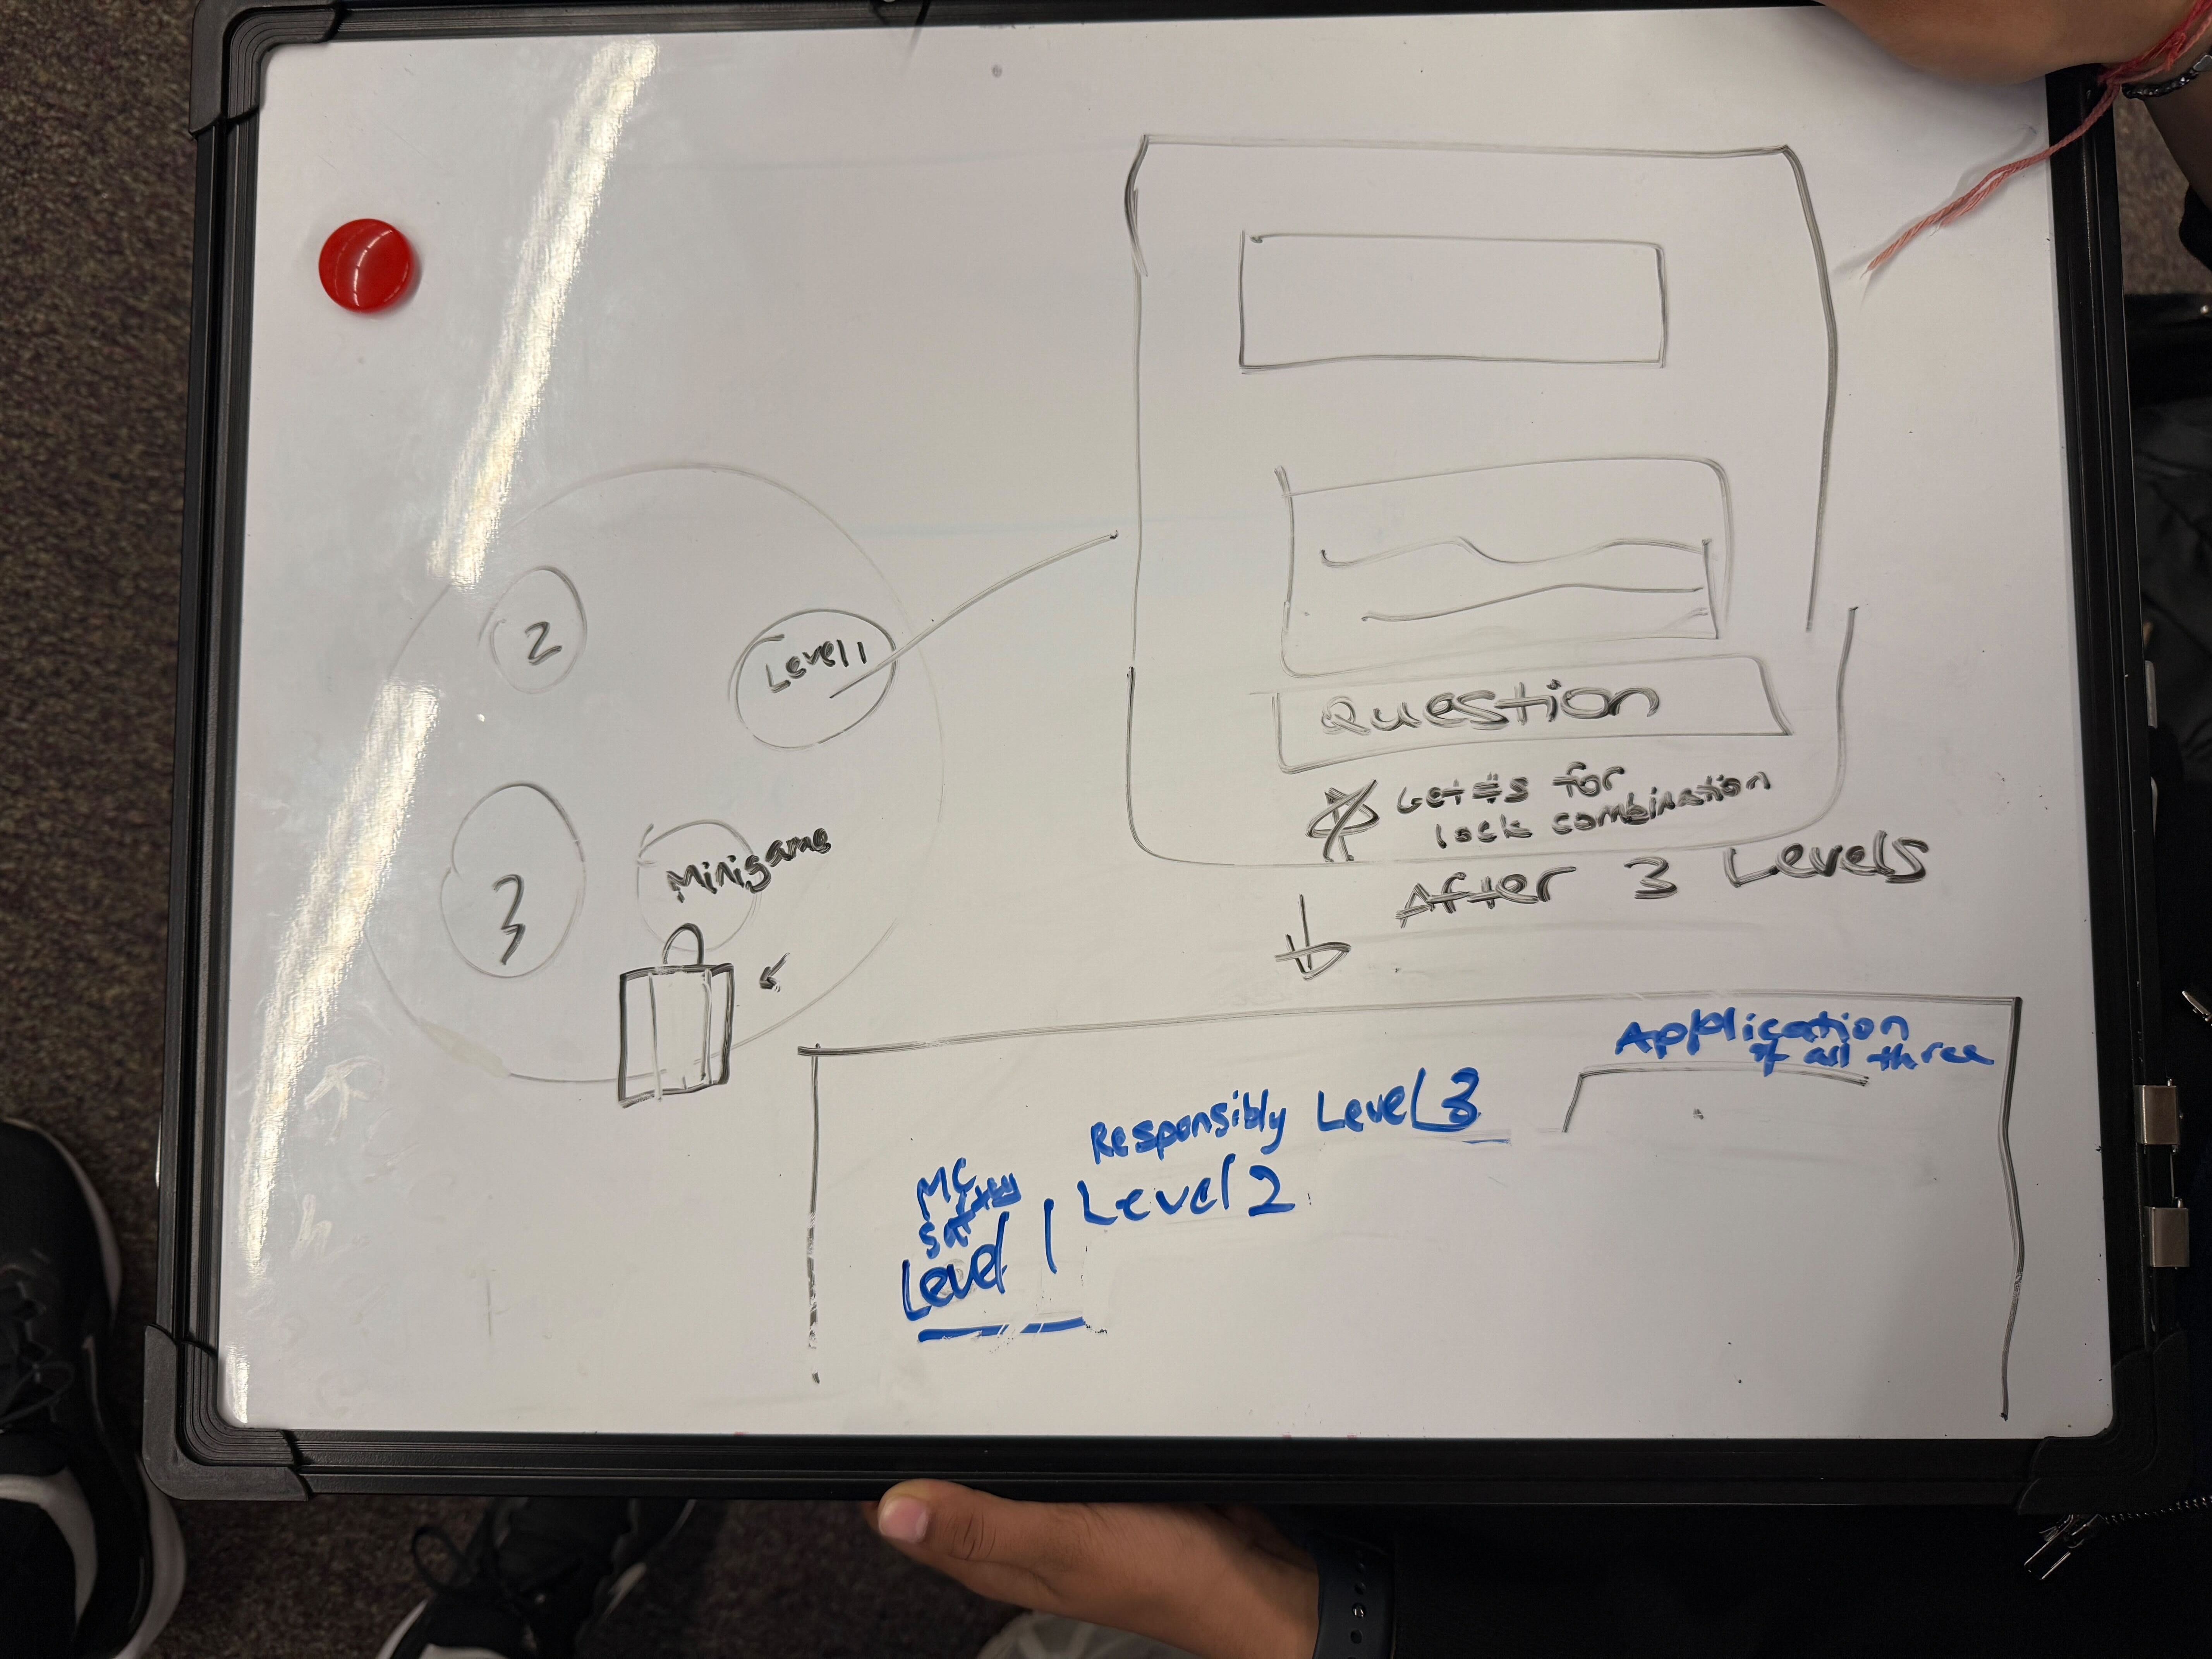 2
Level 1
3
Minigame
Question
Get #s for
lock combination
After 3 Levels
Application
of all three
Responsibly Level 3
MC
Level 2
Level 1